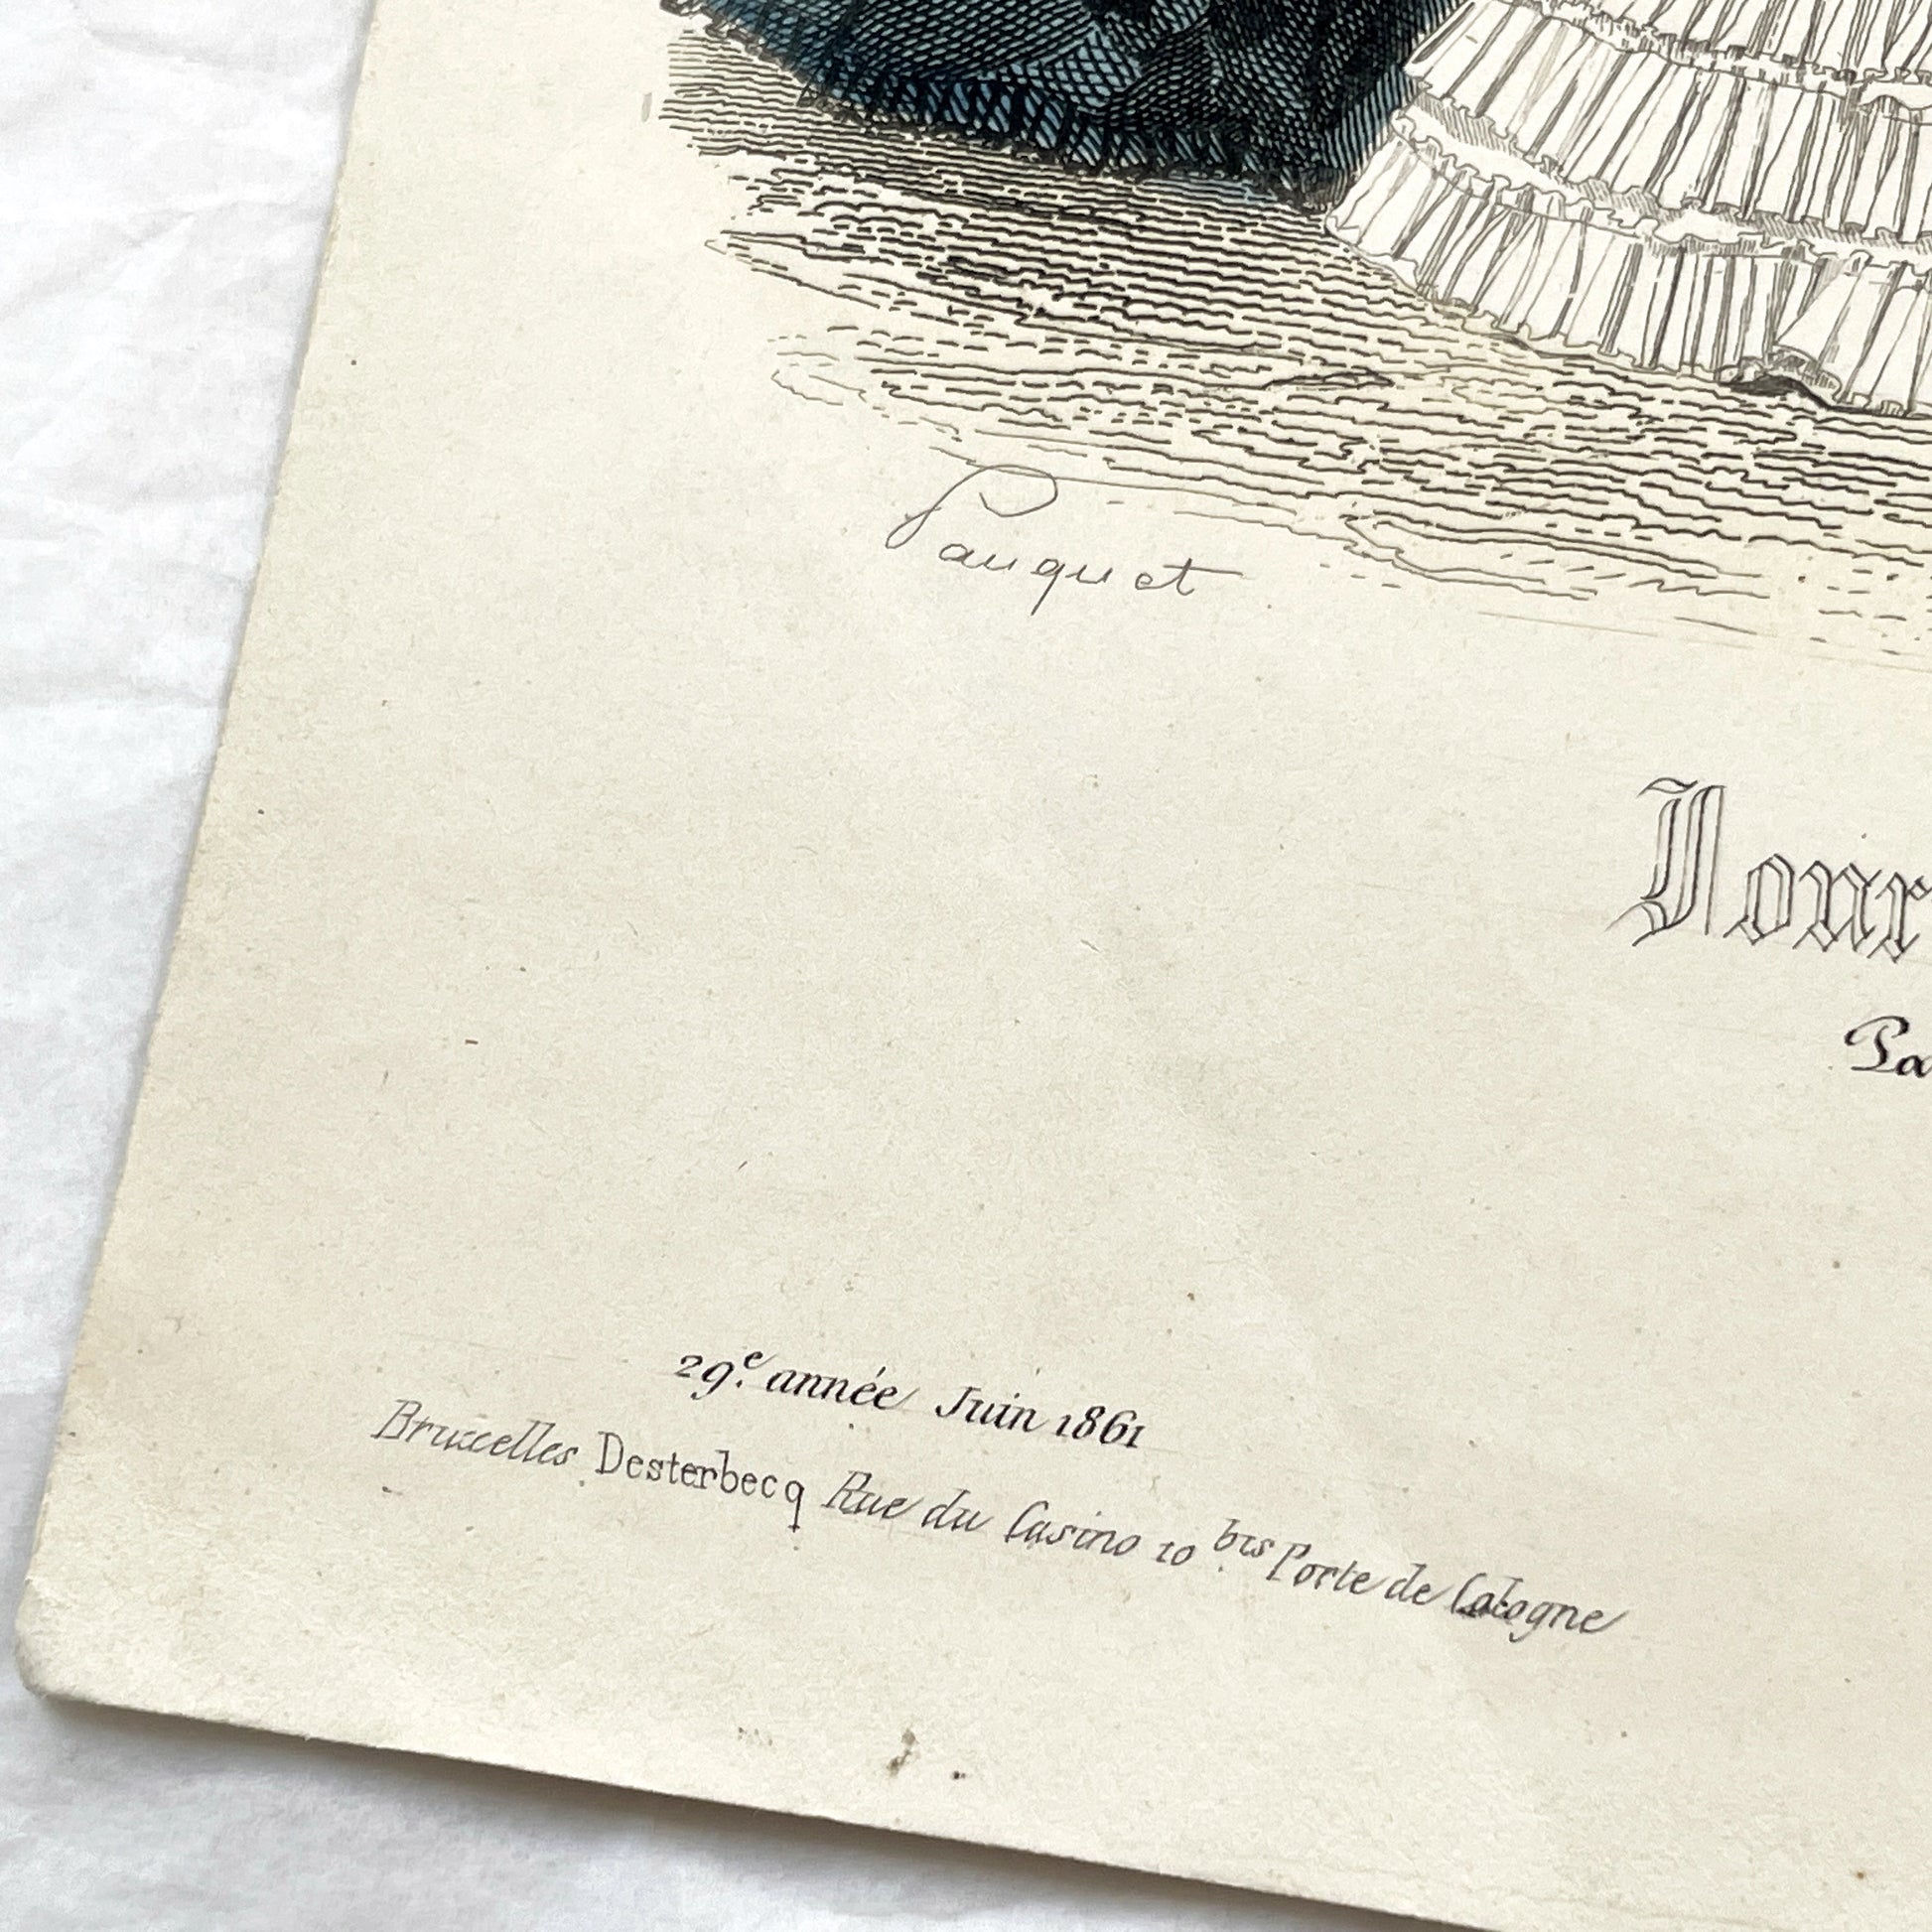 Pauquet
Jour
Pa
29.e année Juin 1861
Bruxelles Desterbecq Rue du Casino 10 bis Porte de Cologne